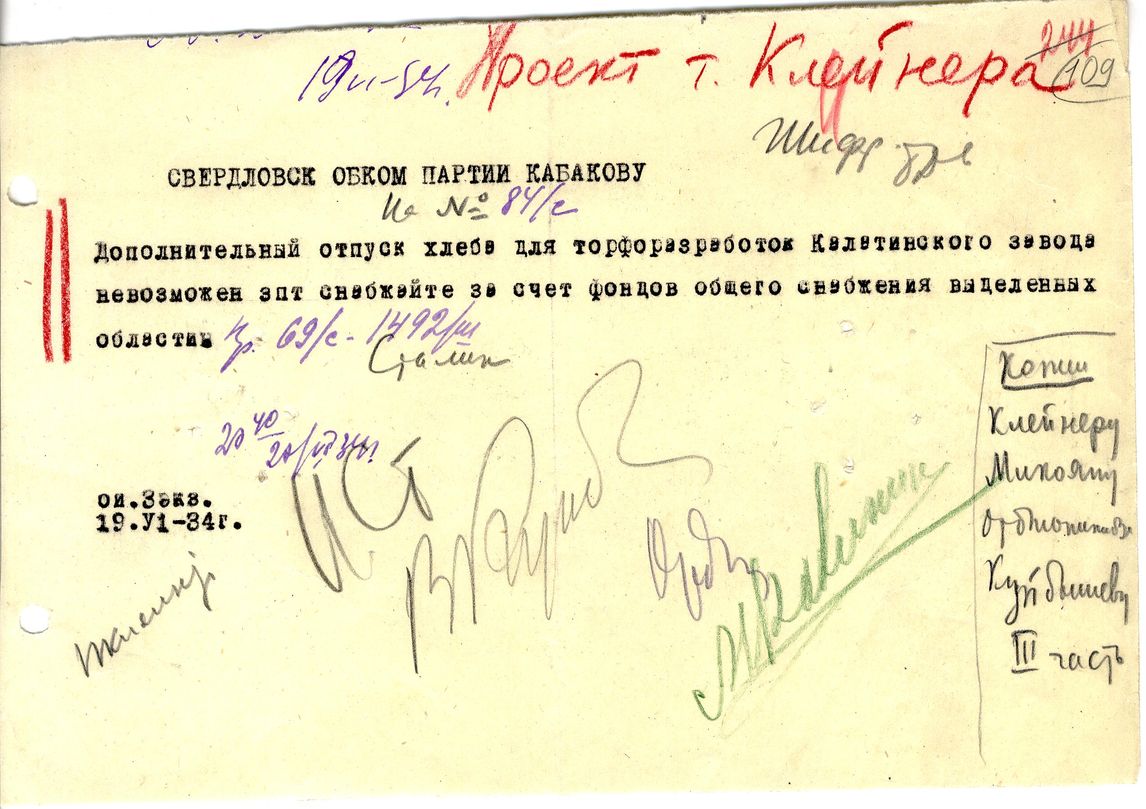 Проект т. Клейнера
244
109
19/VI-34г.
Шифр
СВЕРДЛОВСК ОБКОМ ПАРТИИ КАБАКОВУ
На № 84/с
Дополнительный отпуск хлеба для торфоразработок Калатинского завода
невозможен зпт снабжайте за счет фондов общего снабжения выделенных
области
69/с - 1492/ш
Сталин
20 40
20/VI 34г.
ои.3экз.
19.У1-34г.
И Ст
В Куйб
М Калинин
Копии
Клейнеру
Микояну
Орджоникидзе
Куйбышеву
III часть